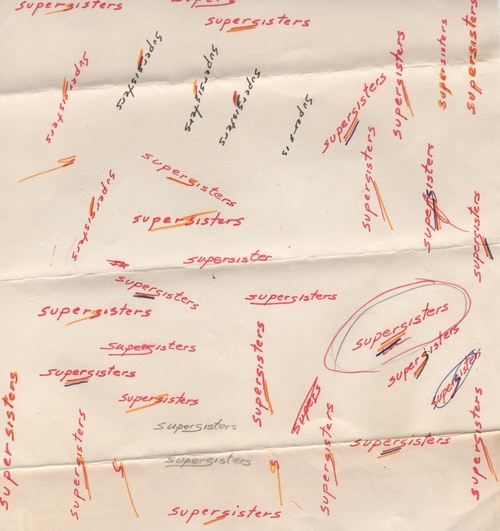 supersisters
supersisters
supersisters
supersisters
supersisters
supersisters
supersisters
supersisters
supersisters
supersisters
supersis
supersisters
supersisters
supersisters
supersisters
supersisters
supersisters
supersisters
supersisters
supersister
supersisters
supersisters
supersisters
supersisters
supersisters
supersisters
supersisters
supersisters
supersisters
supersisters
supersisters
supers
supersisters
supersisters
supersisters
supersisters
supersisters
supersisters
supersisters
supersisters
s
s
supersisters